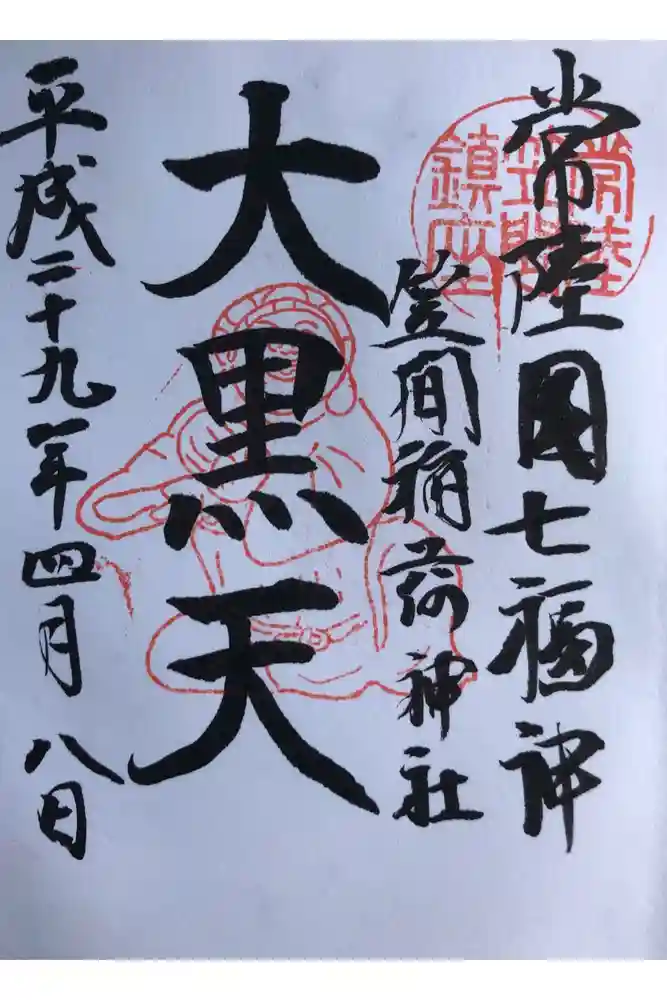 常陸國七福神
笠間稲荷神社
大黒天
平成二十九年四月八日
常陸
笠間
鎮座